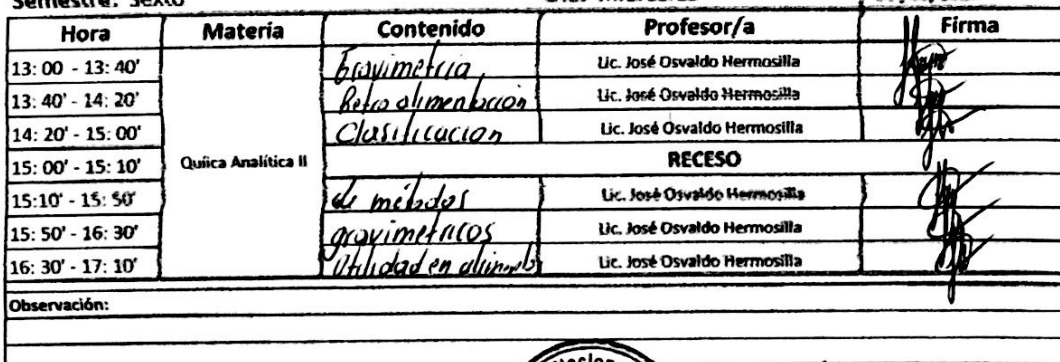 Semestre: Sexto
Hora Materia Contenido Profesor/a Firma
13: 00 - 13: 40' Gravimetria, Lic. José Osvaldo Hermosilla
13: 40' - 14: 20' Retro alimentacion Lic. José Osvaldo Hermosilla
14: 20' - 15: 00' Clasificacion Lic. José Osvaldo Hermosilla
15: 00' - 15: 10' Quiica Analítica II RECESO
15:10' - 15: 50' de metodos Lic. José Osvaldo Hermosilla
15: 50' - 16: 30' gravimetricos Lic. José Osvaldo Hermosilla
16: 30' - 17: 10' Utilidad en Lic. José Osvaldo Hermosilla
Observación: